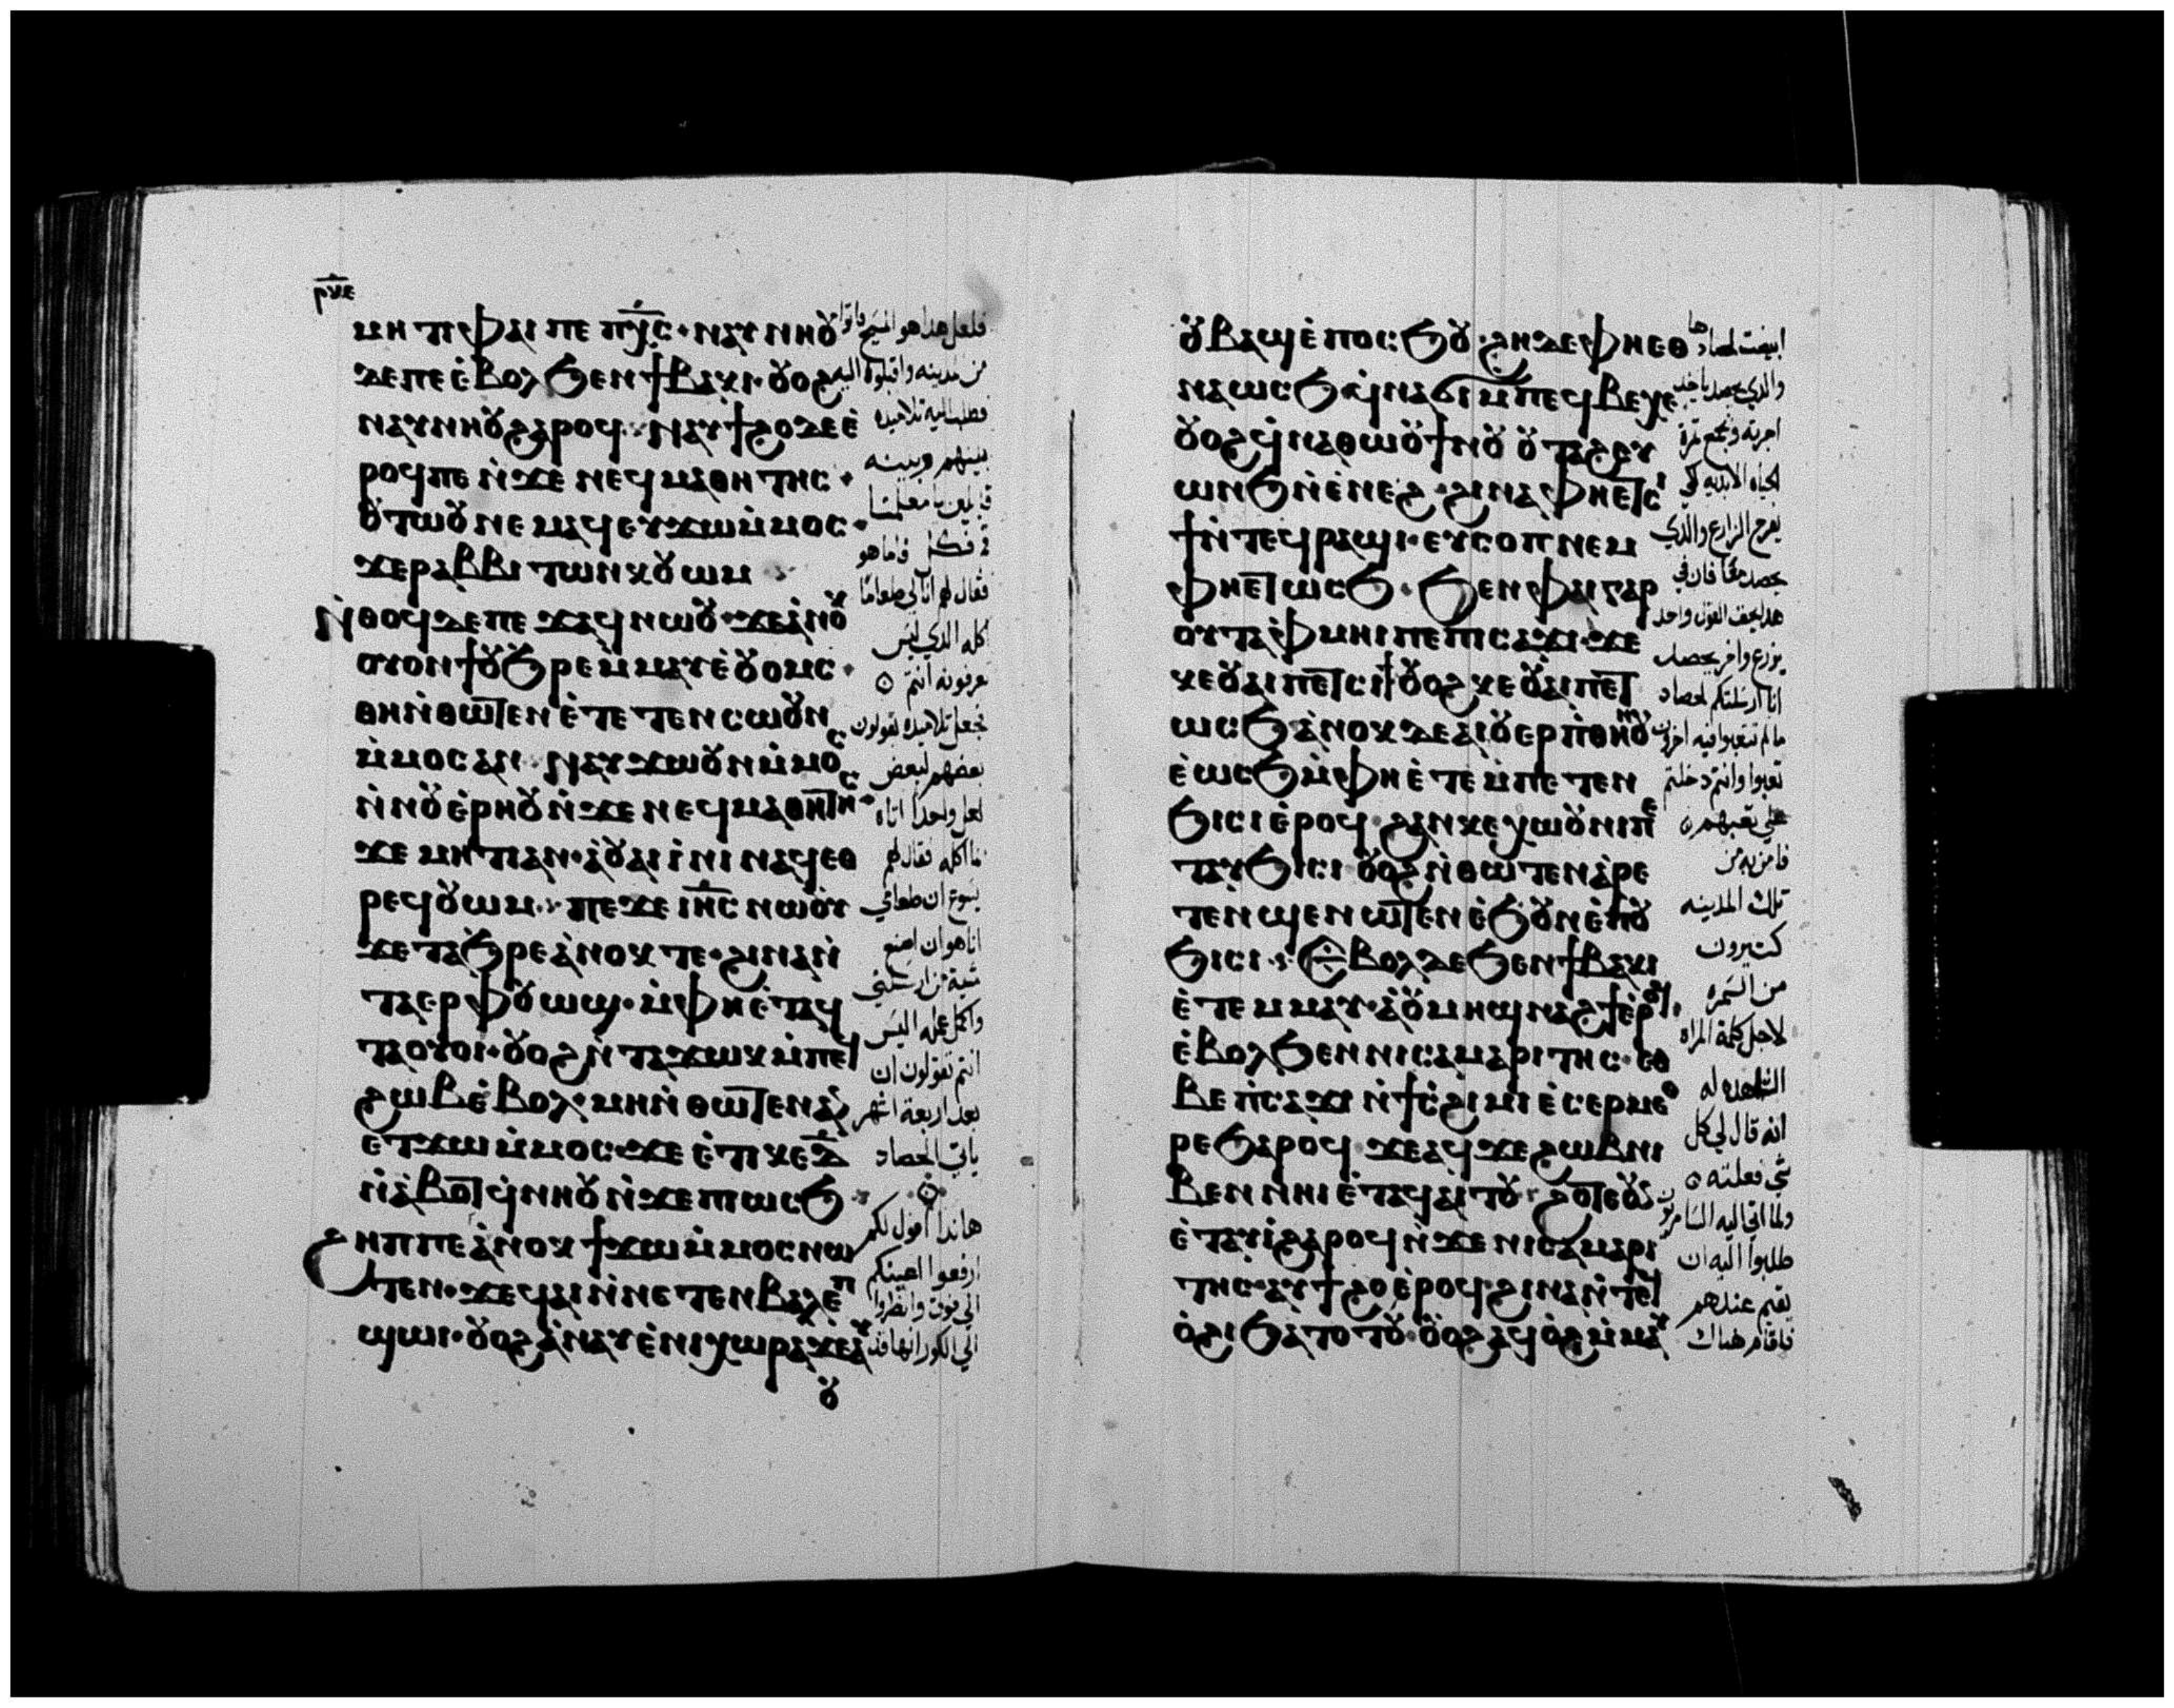 ⲣⲝⲉ
ⲙⲏⲧⲓ ⲫⲁⲓ ⲡⲉ ⲡⲭ̅ⲥ̅· ⲛⲁⲩⲛⲏⲟⲩ
ϫⲉⲡⲉ ⲉ̀ⲃⲟⲗ ϧⲉⲛ ϯⲃⲁⲕⲓ· ⲟⲩⲟϩ
ⲛⲁⲩⲛⲏⲟⲩ ϩⲁⲣⲟϥ· ⲛⲁⲩϯϩⲟ ⲇⲉ ⲉ̀
ⲣⲟϥ ⲡⲉ ⲛ̀ϫⲉ ⲛⲉϥⲙⲁⲑⲏⲧⲏⲥ·
ⲟⲩⲧⲱⲟⲩ ⲛⲉⲙⲁϥ ⲉⲩϫⲱ ⲙ̀ⲙⲟⲥ·
ϫⲉ ⲣⲁⲃⲃⲓ ⲧⲱⲛⲕ ⲟⲩⲱⲙ
ⲛ̀ⲑⲟϥ ⲇⲉ ⲡⲉϫⲁϥ ⲛⲱⲟⲩ· ϫⲉ ⲁ̀ⲛⲟⲕ
ⲟⲩⲟⲛϯ ⲟⲩϧⲣⲉ ⲙ̀ⲙⲁⲩ ⲉ̀ⲟⲩⲟⲙⲥ·
ⲑⲏ ⲛ̀ⲑⲱⲧⲉⲛ ⲉ̀ⲧⲉⲧⲉⲛⲥⲱⲟⲩⲛ
ⲙ̀ⲙⲟⲥ ⲁⲛ· ⲛⲁⲩϫⲱ ⲟⲩⲛ ⲙ̀ⲙⲟⲥ
ⲛ̀ⲛⲟⲩⲉ̀ⲣⲏⲟⲩ ⲛ̀ϫⲉ ⲛⲉϥⲙⲁⲑⲏⲧⲏⲥ·
ϫⲉ ⲙⲏⲧⲓ ⲁⲛ· ⲁ̀ ⲟⲩⲁⲓ ⲓ̀ⲛⲓ ⲛⲁϥ ⲉⲑ
ⲣⲉϥⲟⲩⲱⲙ· ⲡⲉϫⲉ ⲓⲏ̅ⲥ̅ ⲛⲱⲟⲩ
ϫⲉ ⲧⲁϧⲣⲉ ⲁ̀ⲛⲟⲕ ⲧⲉ· ϩⲓⲛⲁ ⲛ̀
ⲧⲁⲉⲣ ⲫⲟⲩⲱϣ· ⲙ̀ⲫⲏ ⲉ̀ⲧⲁϥ
ⲧⲁⲟⲩⲟⲓ· ⲟⲩⲟϩ ⲛ̀ⲧⲁϫⲱⲕ ⲙ̀ⲡⲉϥ
ϩⲱⲃ ⲉ̀ⲃⲟⲗ· ⲙⲏ ⲛ̀ⲑⲱⲧⲉⲛ ⲁⲛ
ⲉⲧϫⲱ ⲙ̀ⲙⲟⲥ· ϫⲉ ⲉ̀ⲧⲓ ⲕⲉ ⲇ̅
ⲛ̀ⲁ̀ⲃⲟⲧ ϥ̀ⲛⲏⲟⲩ ⲛ̀ϫⲉ ⲡⲓⲱⲥϧ
ϩⲏⲡⲡⲉ ⲁ̀ⲛⲟⲕ ϯϫⲱ ⲙ̀ⲙⲟⲥ ⲛⲱ
ⲧⲉⲛ· ϫⲉ ϥⲁⲓ ⲛ̀ⲛⲉⲧⲉⲛⲃⲁⲗ ⲉ̀ⲡ
ϣⲱⲓ· ⲟⲩⲟϩ ⲁ̀ⲛⲁⲩ ⲉ̀ⲛⲓⲭⲱⲣⲁ ϫⲉ ⲁⲩ
ⲟⲩ
فلعل هذا هو المسيح فاتوا
من المدينه واقبلوا اليه
فطلب اليه تلاميذه
بينهم وبينه
قايلين يا معلمنا
فقال لهم انا لي طعاما
اكله الذي ليس
تعرفونه انتم
فجعل تلاميذه يقولون
بعضهم لبعض
لعل واحدا اتاه
بما اكله فقال لهم
يسوع ان طعامي
انا هو ان اصنع
مشية من ارسلني
واكمل عمله اليس
انتم تقولون ان
بعد اربعة اشهر
ياتي الحصاد
هاندا اقول لكم
ارفعوا اعينكم
الي فوق وانظروا
الي الكور انها قد
ⲟⲩⲃⲁϣ ⲉ̀ⲡⲟⲥϧⲟⲩ· ϩⲏⲇⲉ ⲫⲏⲉⲑ
ⲛⲁⲱⲥϧ ϥ̀ⲛⲁϭⲓ ⲙ̀ⲡⲉϥⲃⲉⲭⲉ
ⲟⲩⲟϩ ϥ̀ⲛⲁⲑⲱⲟⲩϯ ⲛ̀ⲟⲩⲟⲩⲧⲁϩ ⲉⲩ
ⲱⲛϧ ⲛ̀ⲉ̀ⲛⲉϩ· ϩⲓⲛⲁ ⲫⲏⲉⲧⲥⲓ
ϯ ⲛ̀ⲧⲉϥⲣⲁϣⲓ· ⲉⲩⲥⲟⲡ ⲛⲉⲙ
ⲫⲏⲉⲧⲱⲥϧ· ϧⲉⲛ ⲫⲁⲓ ⲅⲁⲣ
ⲟⲩⲧⲁⲫⲙⲏⲓ ⲡⲉ ⲡⲓⲥⲁϫⲓ· ϫⲉ
ⲕⲉⲟⲩⲁⲓ ⲡⲉⲧⲥⲓϯ ⲟⲩⲟϩ ⲕⲉⲟⲩⲁⲓ ⲡⲉⲧ
ⲱⲥϧ ⲁ̀ⲛⲟⲕ ⲇⲉ ⲁⲓⲟⲩⲉⲣⲡ ⲑⲏⲛⲟⲩ
ⲉ̀ⲱⲥϧ ⲙ̀ⲫⲏ ⲉ̀ⲧⲉ ⲙ̀ⲡⲉⲧⲉⲛ
ϧⲓⲥⲓ ⲉ̀ⲣⲟϥ ϩⲁⲛⲕⲉⲭⲱⲟⲩⲛⲓ ⲡⲉ
ⲧⲁⲩϧⲓⲥⲓ ⲟⲩⲟϩ ⲛ̀ⲑⲱⲧⲉⲛ ⲁ̀ⲣⲉ
ⲧⲉⲛϣⲉⲛⲱⲧⲉⲛ ⲉ̀ϧⲟⲩⲛ ⲉ̀ⲡⲟⲩ
ϧⲓⲥⲓ· ⲉ̀ⲃⲟⲗ ⲇⲉ ϧⲉⲛ ϯⲃⲁⲕⲓ
ⲉ̀ⲧⲉⲙⲙⲁⲩ· ⲁ̀ ⲟⲩⲙⲏϣ ⲛⲁϩϯ ⲉ̀ⲣⲟϥ·
ⲉ̀ⲃⲟⲗ ϧⲉⲛ ⲛⲓⲥⲁⲙⲁⲣⲓⲧⲏⲥ· ⲉⲑ
ⲃⲉ ⲡ̀ⲥⲁϫⲓ ⲛ̀ϯⲥ̀ϩⲓⲙⲓ ⲉ̀ⲥⲉⲣⲙⲉⲑ
ⲣⲉ ϧⲁⲣⲟϥ ϫⲉ ⲁϥϫⲉ ϩⲱⲃ ⲛⲓ
ⲃⲉⲛ ⲛⲏⲓ ⲉ̀ⲧⲁⲓⲁⲓⲧⲟⲩ· ϩⲟⲧⲉ ⲟⲩⲛ
ⲉ̀ⲧⲁⲩⲓ̀ ϩⲁⲣⲟϥ ⲛ̀ϫⲉ ⲛⲓⲥⲁⲙⲁⲣⲓ
ⲧⲏⲥ· ⲁⲩϯϩⲟ ⲉ̀ⲣⲟϥ ϩⲓⲛⲁ ⲛ̀ⲧⲉϥ
ⲟ̀ϩⲓ ϧⲁⲧⲟⲧⲟⲩ· ⲟⲩⲟϩ ⲁϥⲟ̀ϩⲓ ⲙ̀ⲙⲁⲩ
ابيضت لحصادها
والذي يحصد ياخذ
اجرته ويجمع ثمرة
لحياه الابديه لكي
يفرح الزارع والذي
يحصد معا فان في
هذا يحق القول واحد
يزرع واخر يحصد
انا ارسلتكم لحصاد
ما لم تتعبوا فيه اخرين
تعبوا وانتم دخلتم
علي تعبهم
فامن به من
تلك المدينه
كتيرون
من السمره
لاجل كلمة المراه
الشاهده له
انه قال لي كل
شي فعلته
ولما اتي اليه السامريون
طلبوا اليه ان
يقيم عندهم
فاقام هناك